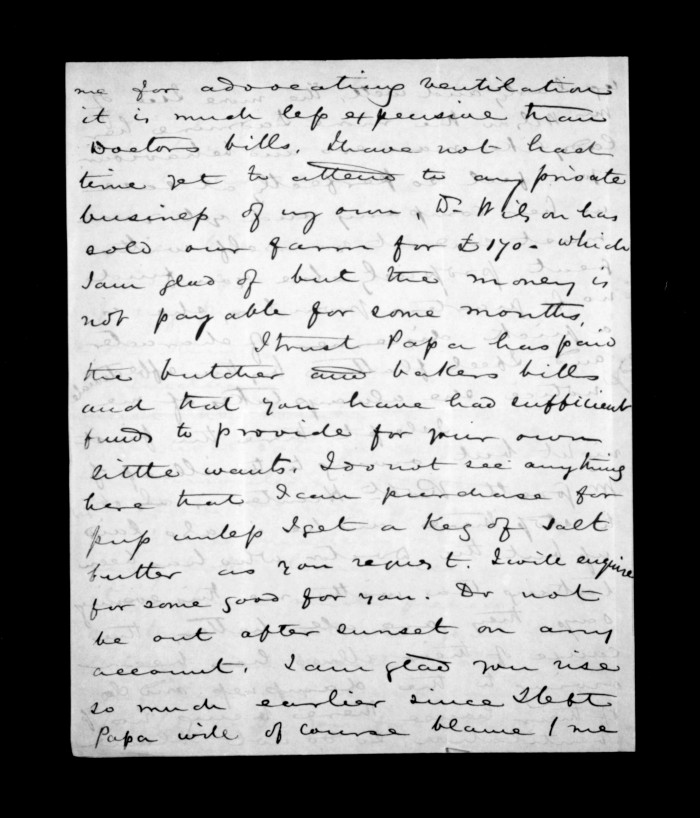 me for advocating ventilation
it is much less expensive than
Doctors bills. I have not had
time yet to attend to any private
business of my own, Dr Wilson has
sold our farm for £170 - which
I am glad of but the money is
not payable for some months.
I trust Papa has paid
the butcher and bakers bills
and that you have had sufficient
funds to provide for your own
little wants. I do not see anything
here that I can purchase for
pup unless I get a Keg of salt
butter as you request. I will enquire
for some good for you. Do not
be out after sunset on any
account. I am glad you rise
so much earlier since I left
Papa will of course blame / me